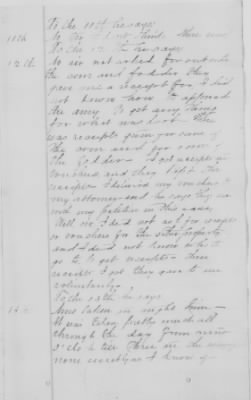 To the 11th he says:
11th
To the 12th he says
12th No sir not asked for outside
the corn and fodder they
gave me a receipt for. I did
not know how to approach
the army to get any thing
for what was lost. There
was receipts given for some of
the corn and for some of
the fodder. I got receipts at
and they kept the
receipts I delivered my vouchers to
my attorney and he says they are
with my petition in this case.
Well no I did not ask for receipts
or vouchers for the other property
and I did not know who to
go to to get receipts - these
receipts I got they gave to me
voluntarily.
To the 14th he says
14th None taken in night time -
It was taken pretty much all
through the day from nine
o'clk to till three in the evening
none secretly as I know of